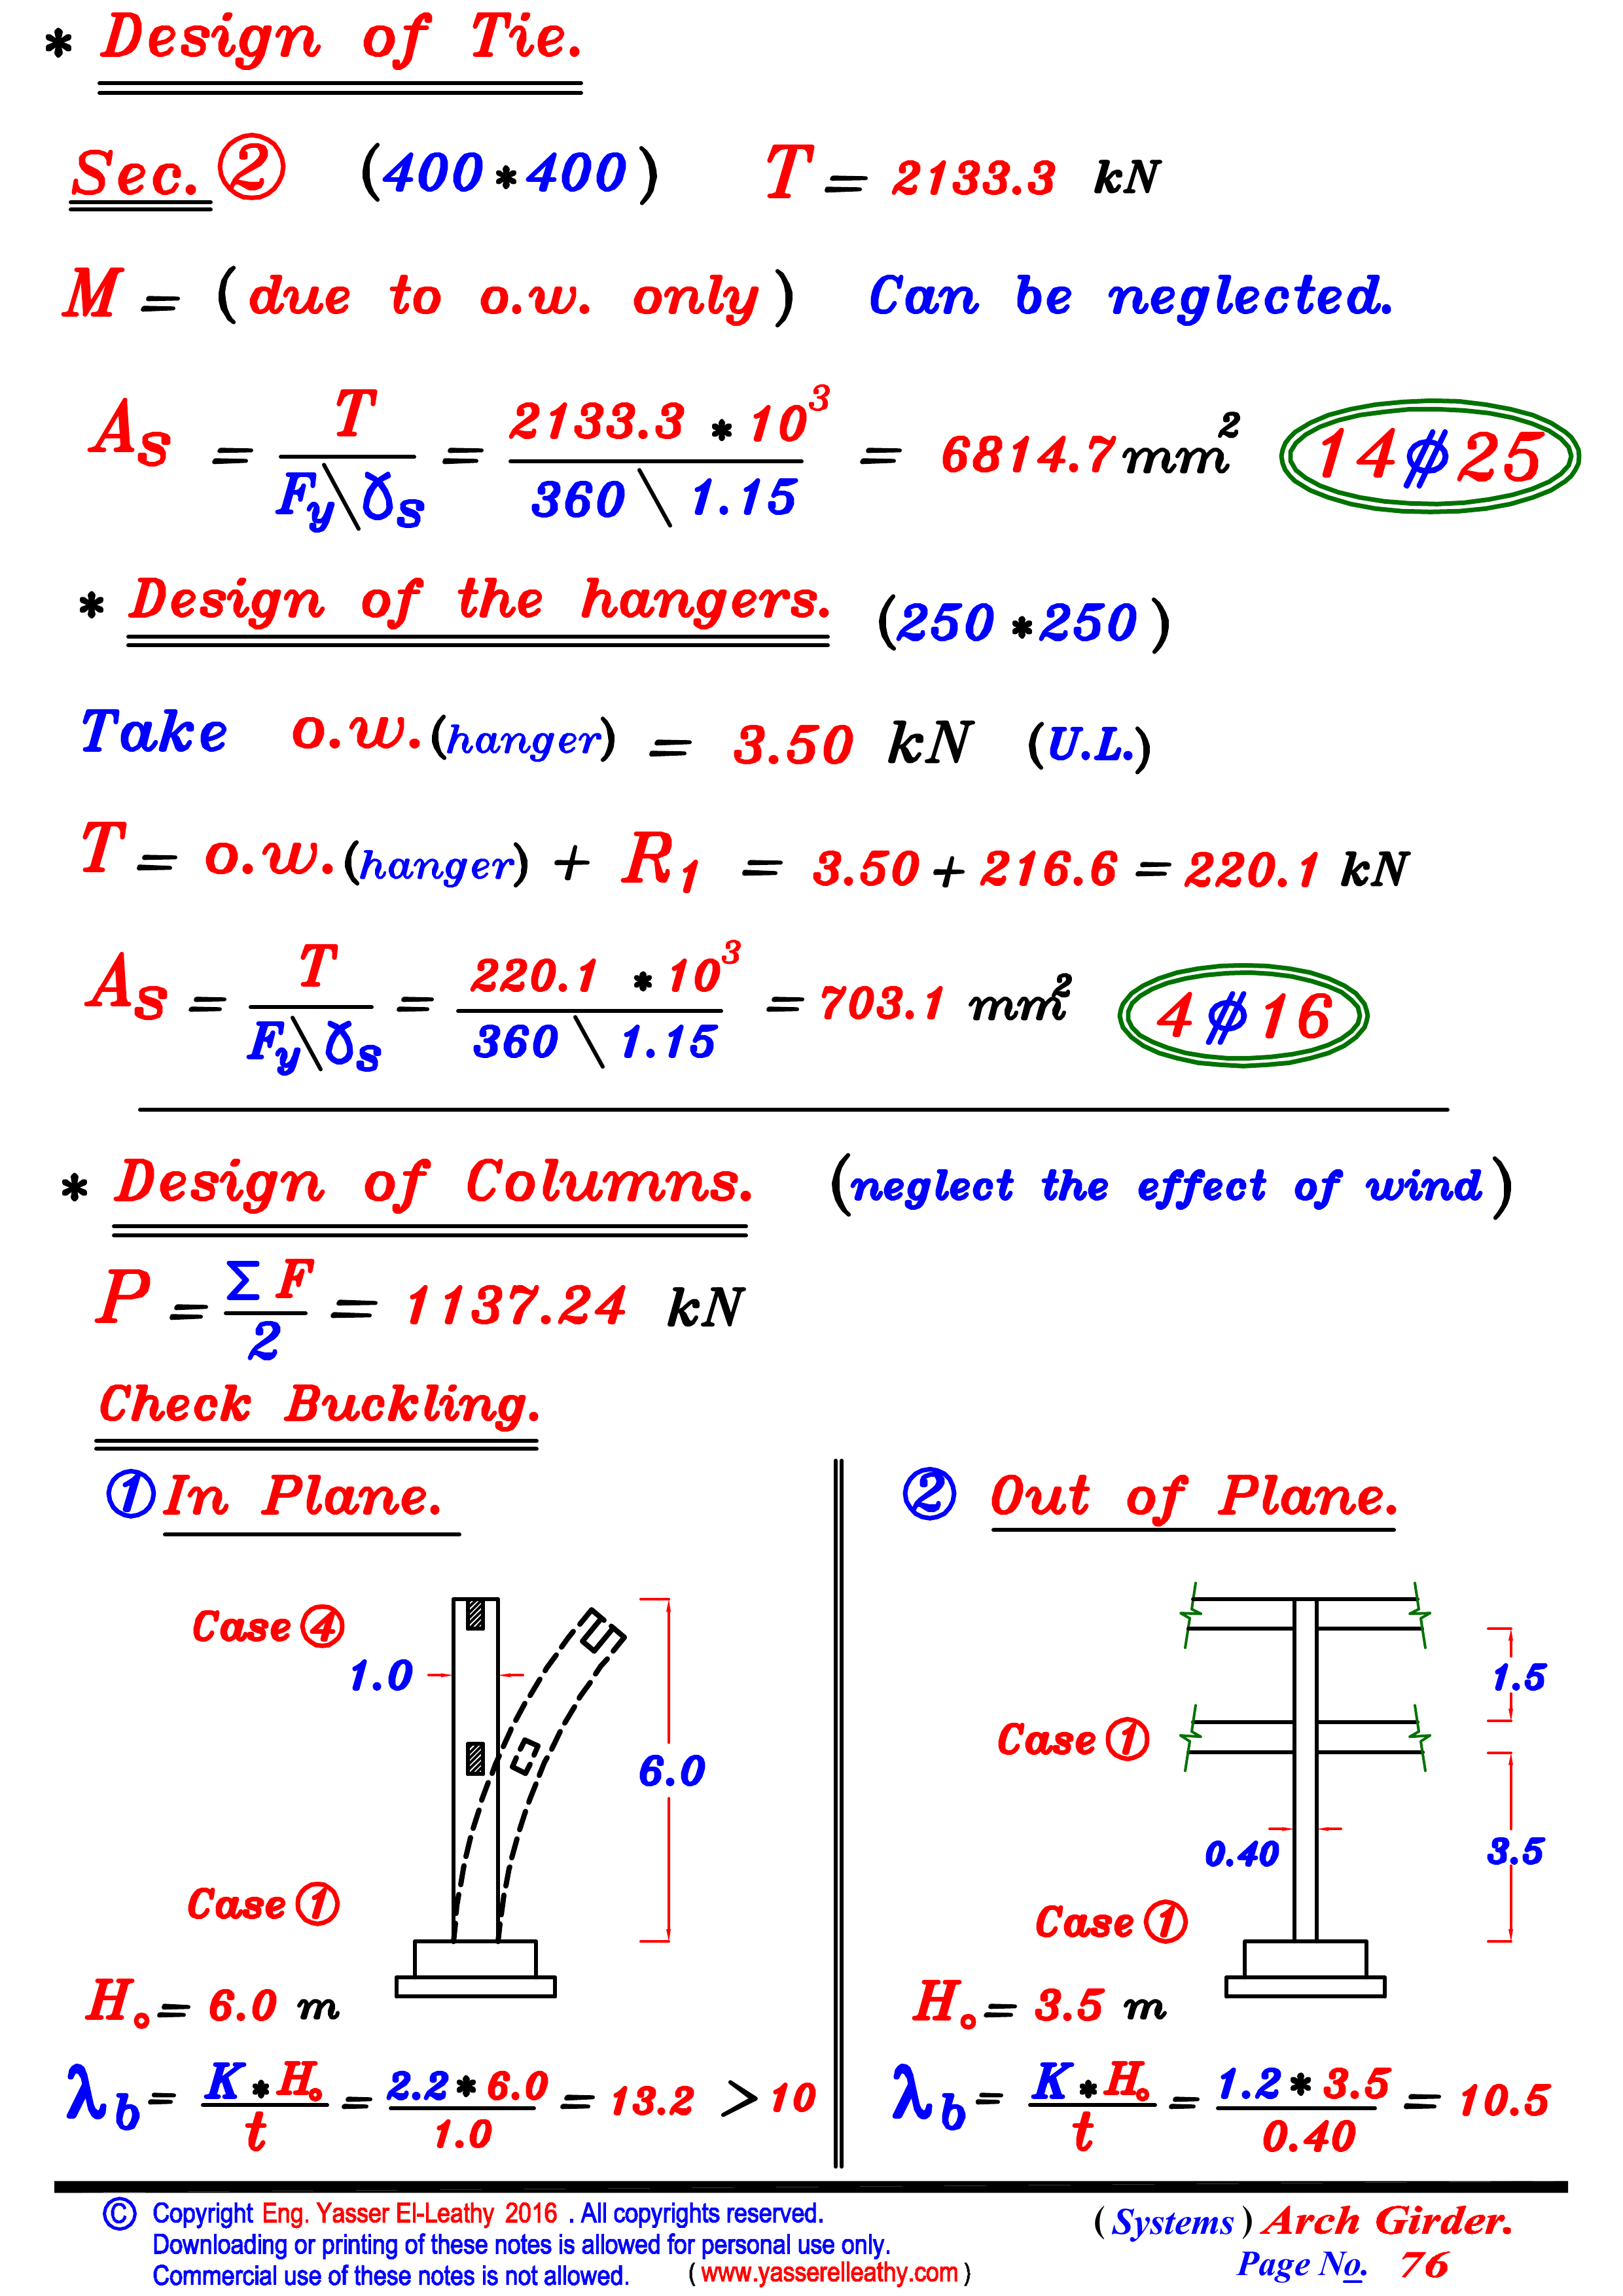 * Design of Tie.
Sec. ② (400 * 400) T = 2133.3 kN
M = (due to o.w. only) Can be neglected.
As = T / (Fy\γs) = 2133.3 * 10³ / (360 \ 1.15) = 6814.7 mm² 14 ⌀ 25
* Design of the hangers. (250 * 250)
Take o.w.(hanger) = 3.50 kN (U.L.)
T = o.w.(hanger) + R1 = 3.50 + 216.6 = 220.1 kN
As = T / (Fy\γs) = 220.1 * 10³ / (360 \ 1.15) = 703.1 mm² 4 ⌀ 16
* Design of Columns. (neglect the effect of wind)
P = Σ F / 2 = 1137.24 kN
Check Buckling.
① In Plane.
Case ④
1.0
6.0
Case ①
H₀ = 6.0 m
λb = K * H₀ / t = 2.2 * 6.0 / 1.0 = 13.2 > 10
② Out of Plane.
1.5
Case ①
0.40
3.5
Case ①
H₀ = 3.5 m
λb = K * H₀ / t = 1.2 * 3.5 / 0.40 = 10.5
© Copyright Eng. Yasser El-Leathy 2016 . All copyrights reserved.
Downloading or printing of these notes is allowed for personal use only.
Commercial use of these notes is not allowed. ( www.yasserelleathy.com )
(Systems) Arch Girder.
Page No. 76